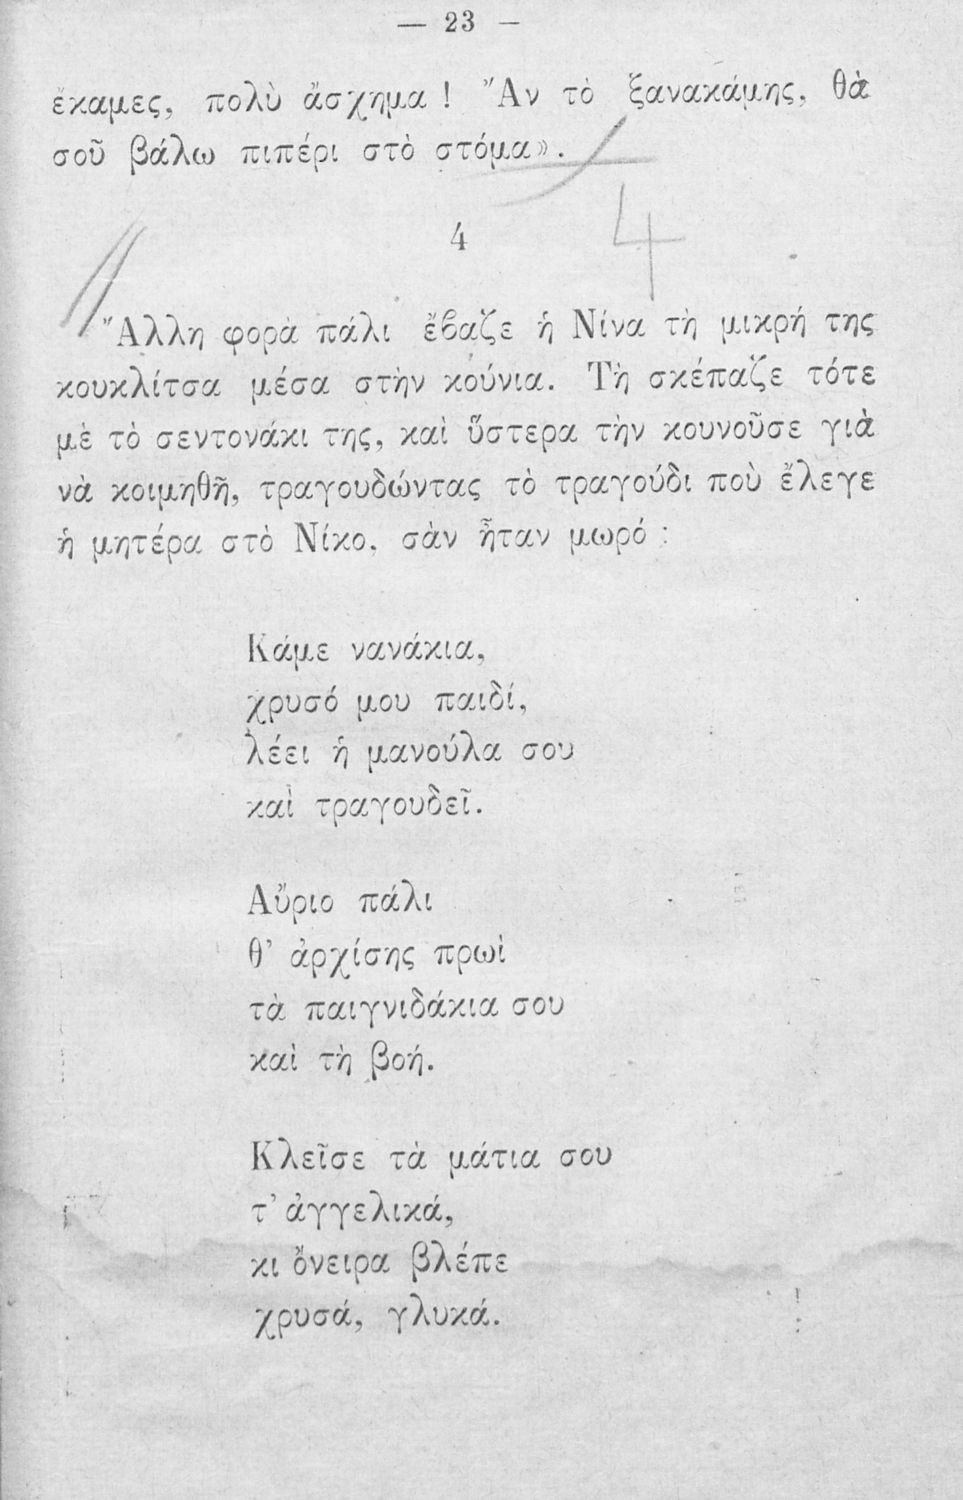 — 23 —
ἔκαμες, πολὺ ἄσχημα ! Ἂν τὸ ξανακάμης, θὰ
σοῦ βάλω πιπέρι στὸ στόμα».
4
4
Ἄλλη φορὰ πάλι ἔβαζε ἡ Νίνα τὴ μικρή της
κουκλίτσα μέσα στὴν κούνια. Τὴ σκέπαζε τότε
μὲ τὸ σεντονάκι της, καὶ ὕστερα τὴν κουνοῦσε γιὰ
νὰ κοιμηθῆ, τραγουδώντας τὸ τραγούδι ποὺ ἔλεγε
ἡ μητέρα στὸ Νίκο, σὰν ἦταν μωρό :
Κάμε νανάκια,
χρυσό μου παιδί,
λέει ἡ μανούλα σου
καὶ τραγουδεῖ.
Αὔριο πάλι
θ’ ἀρχίσης πρωὶ
τὰ παιγνιδάκια σου
καὶ τὴ βοή.
Κλεῖσε τὰ μάτια σου
τ’ ἀγγελικά,
κι ὄνειρα βλέπε
χρυσά, γλυκά.